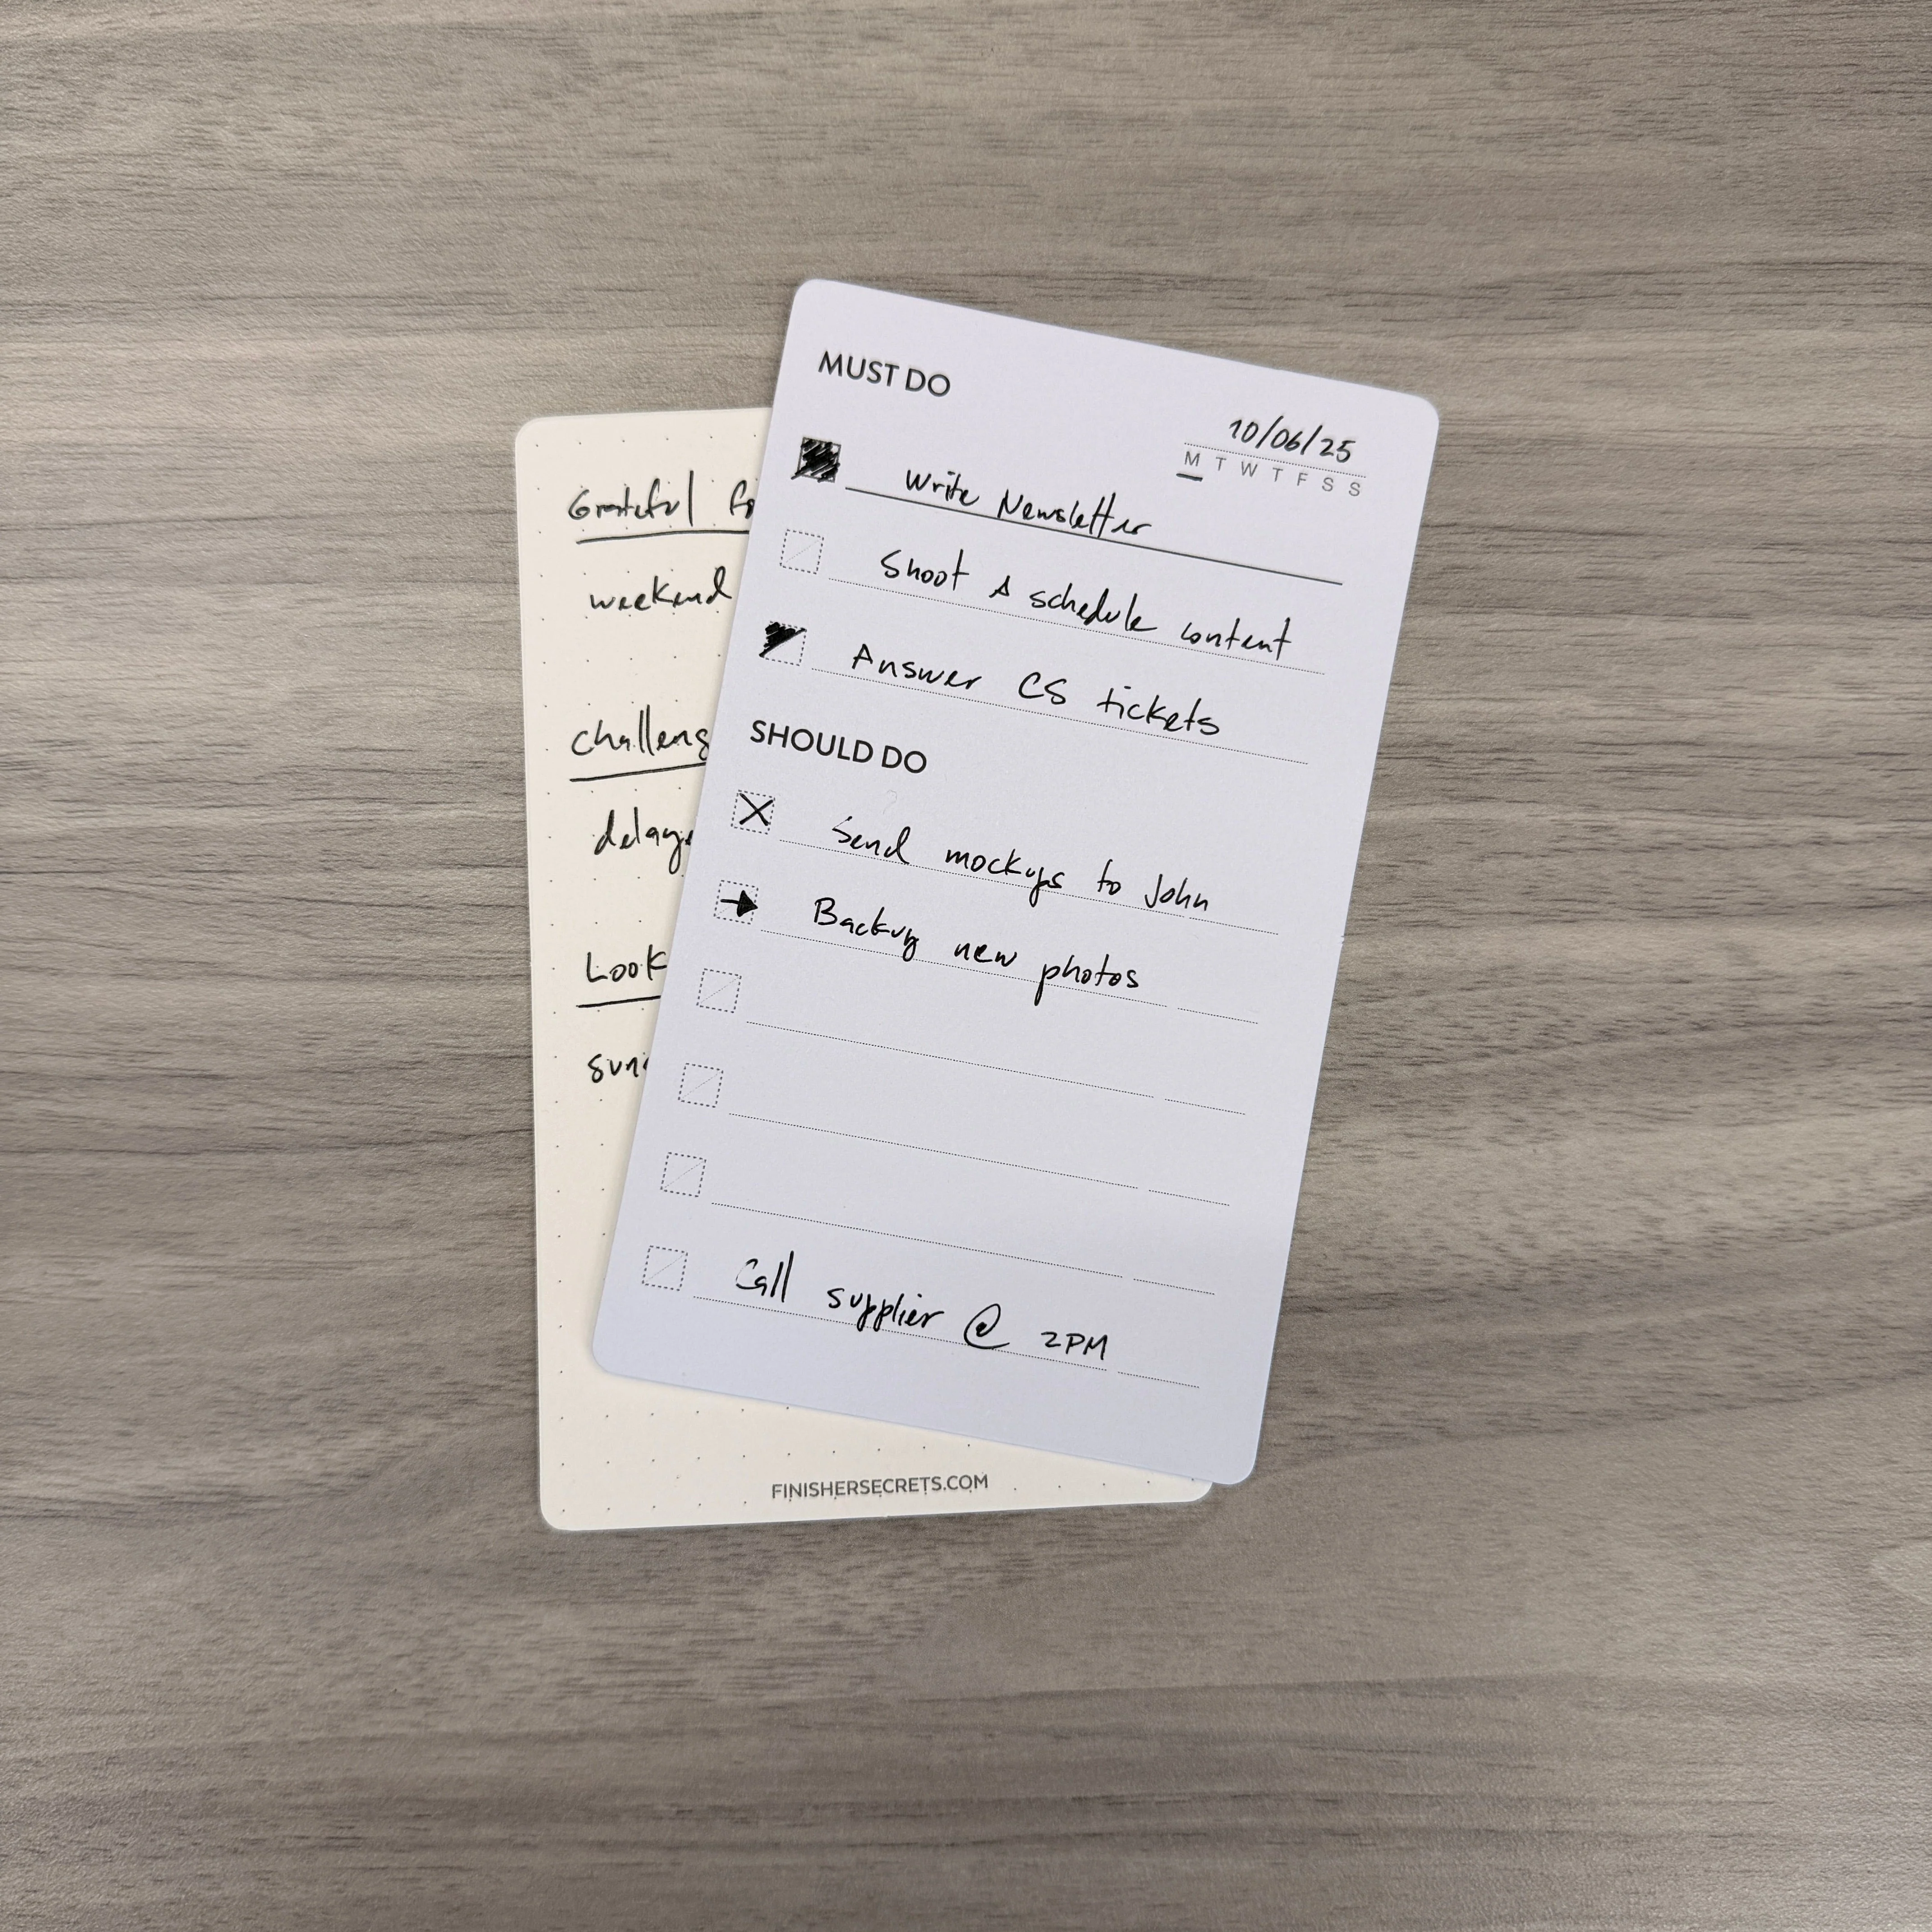 MUST DO
10/06/25
M T W T F S S
Write Newsletter
Shoot & schedule content
Answer CS tickets
SHOULD DO
Send mockups to John
Backup new photos
Call supplier @ 2PM
Grateful fo
weekend
challeng
delaye
Look
FINISHERSECRETS.COM